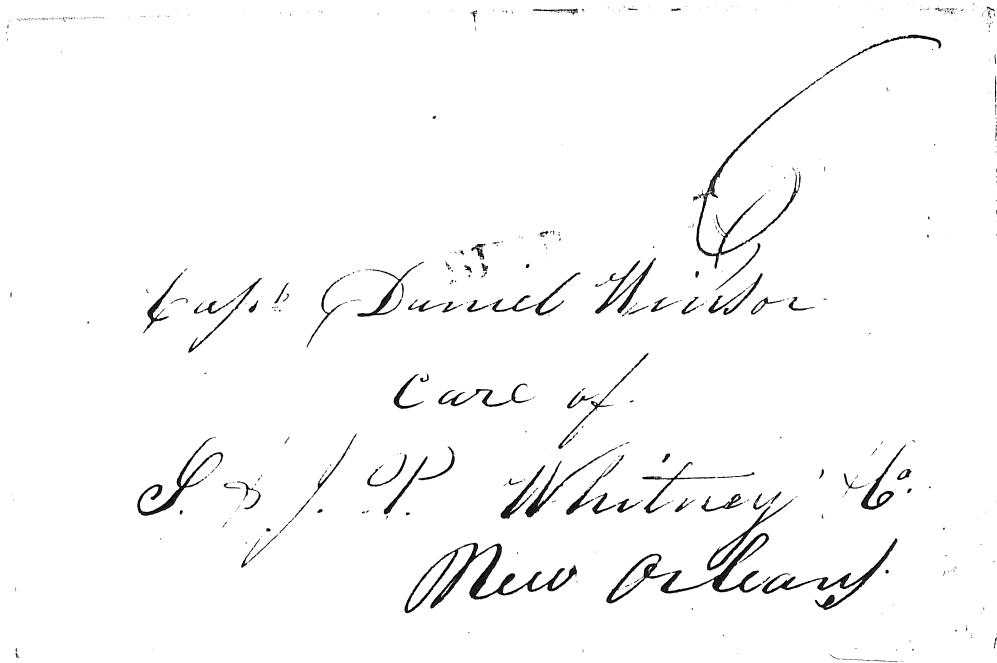 Capt Daniel Winsor
Care of
S. & J. P. Whitney & Co.
New Orleans.